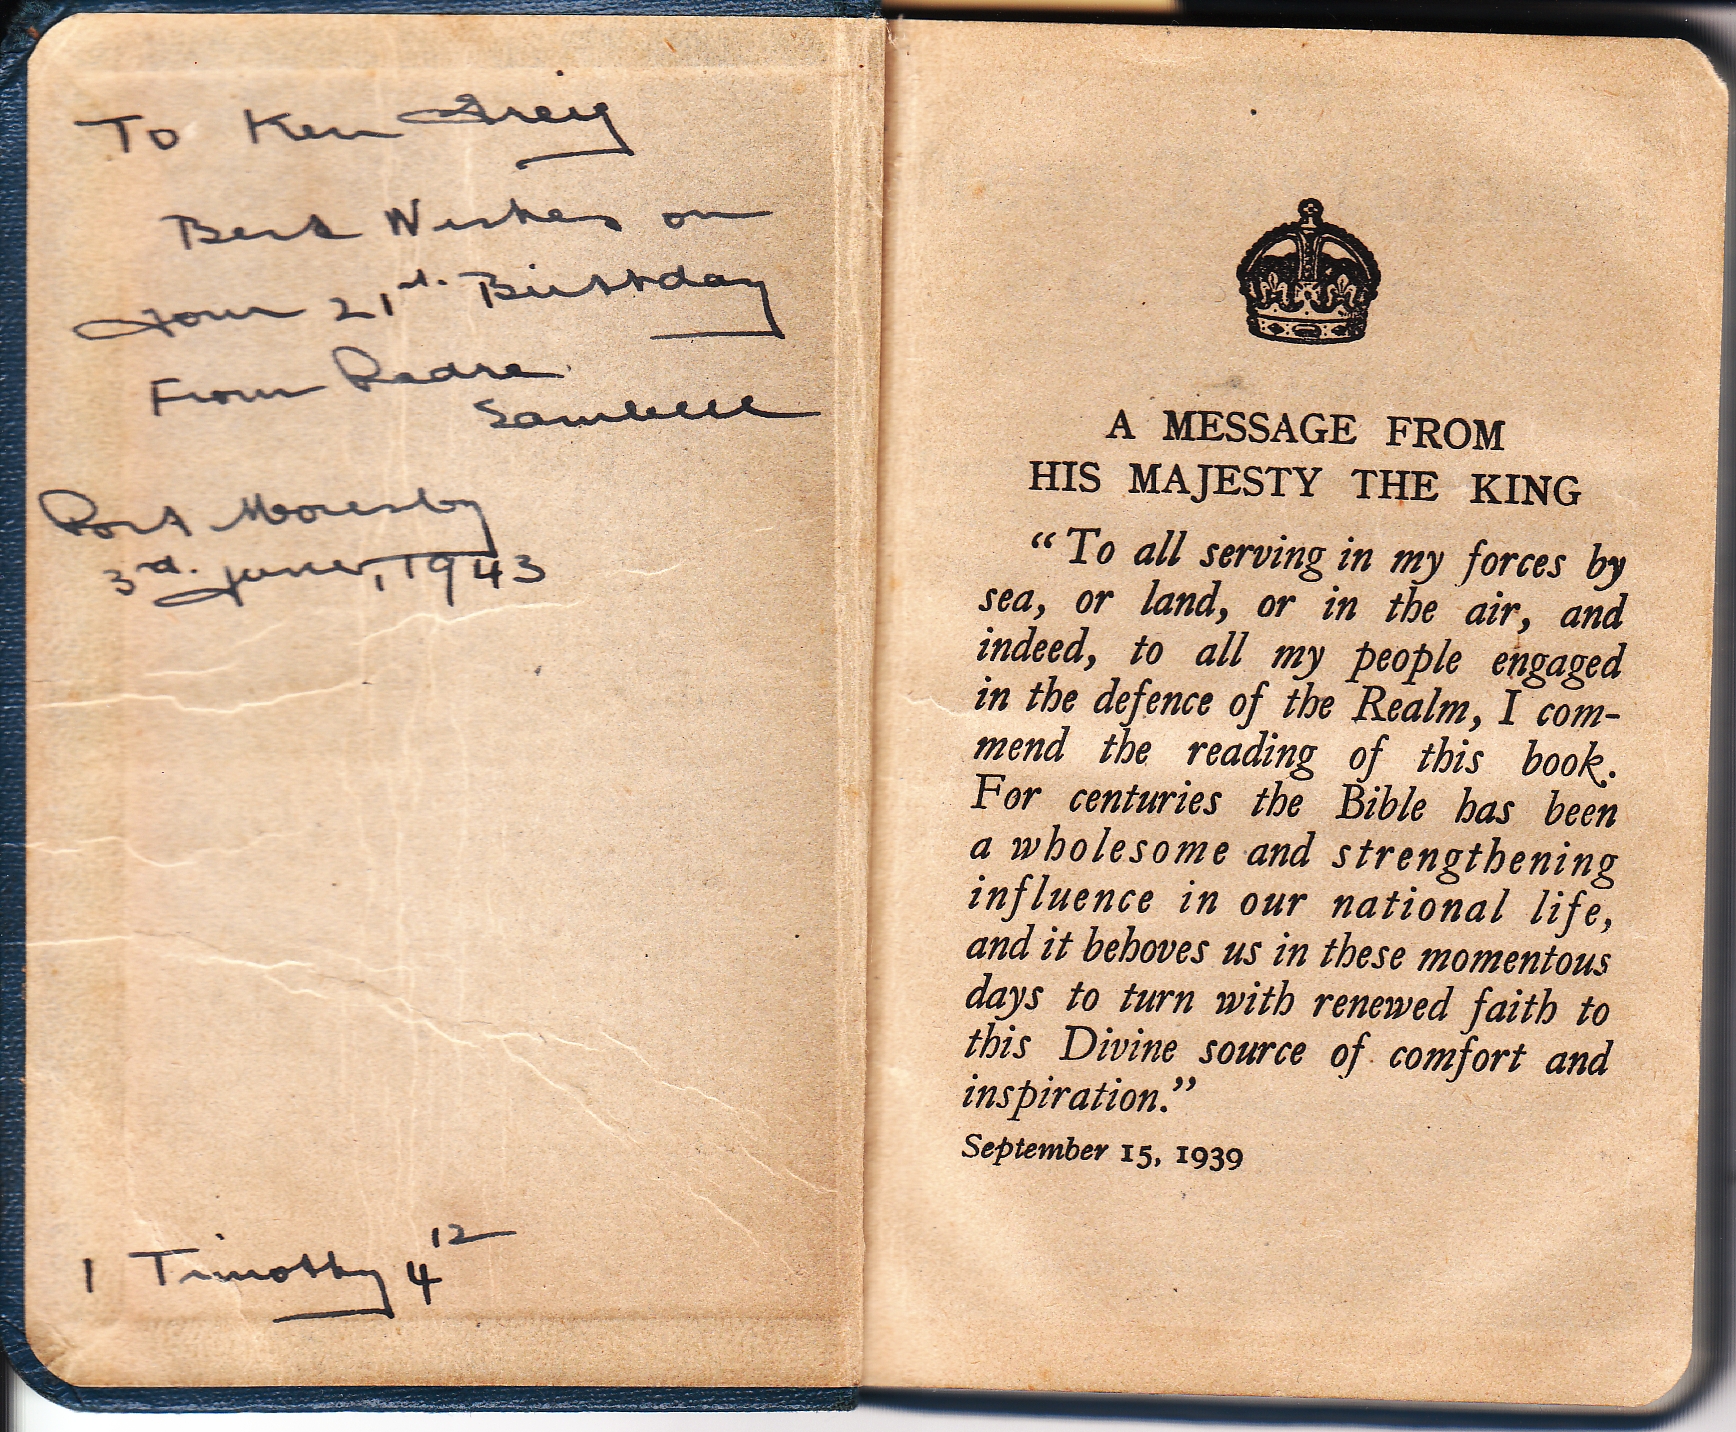 To Ken Greig
Best Wishes on
Your 21st. Birthday
From Padre
Sambell
Port Moresby
3rd. June, 1943
1 Timothy 4 12
A MESSAGE FROM
HIS MAJESTY THE KING
“To all serving in my forces by
sea, or land, or in the air, and
indeed, to all my people engaged
in the defence of the Realm, I com-
mend the reading of this book.
For centuries the Bible has been
a wholesome and strengthening
influence in our national life,
and it behoves us in these momentous
days to turn with renewed faith to
this Divine source of comfort and
inspiration.”
September 15, 1939